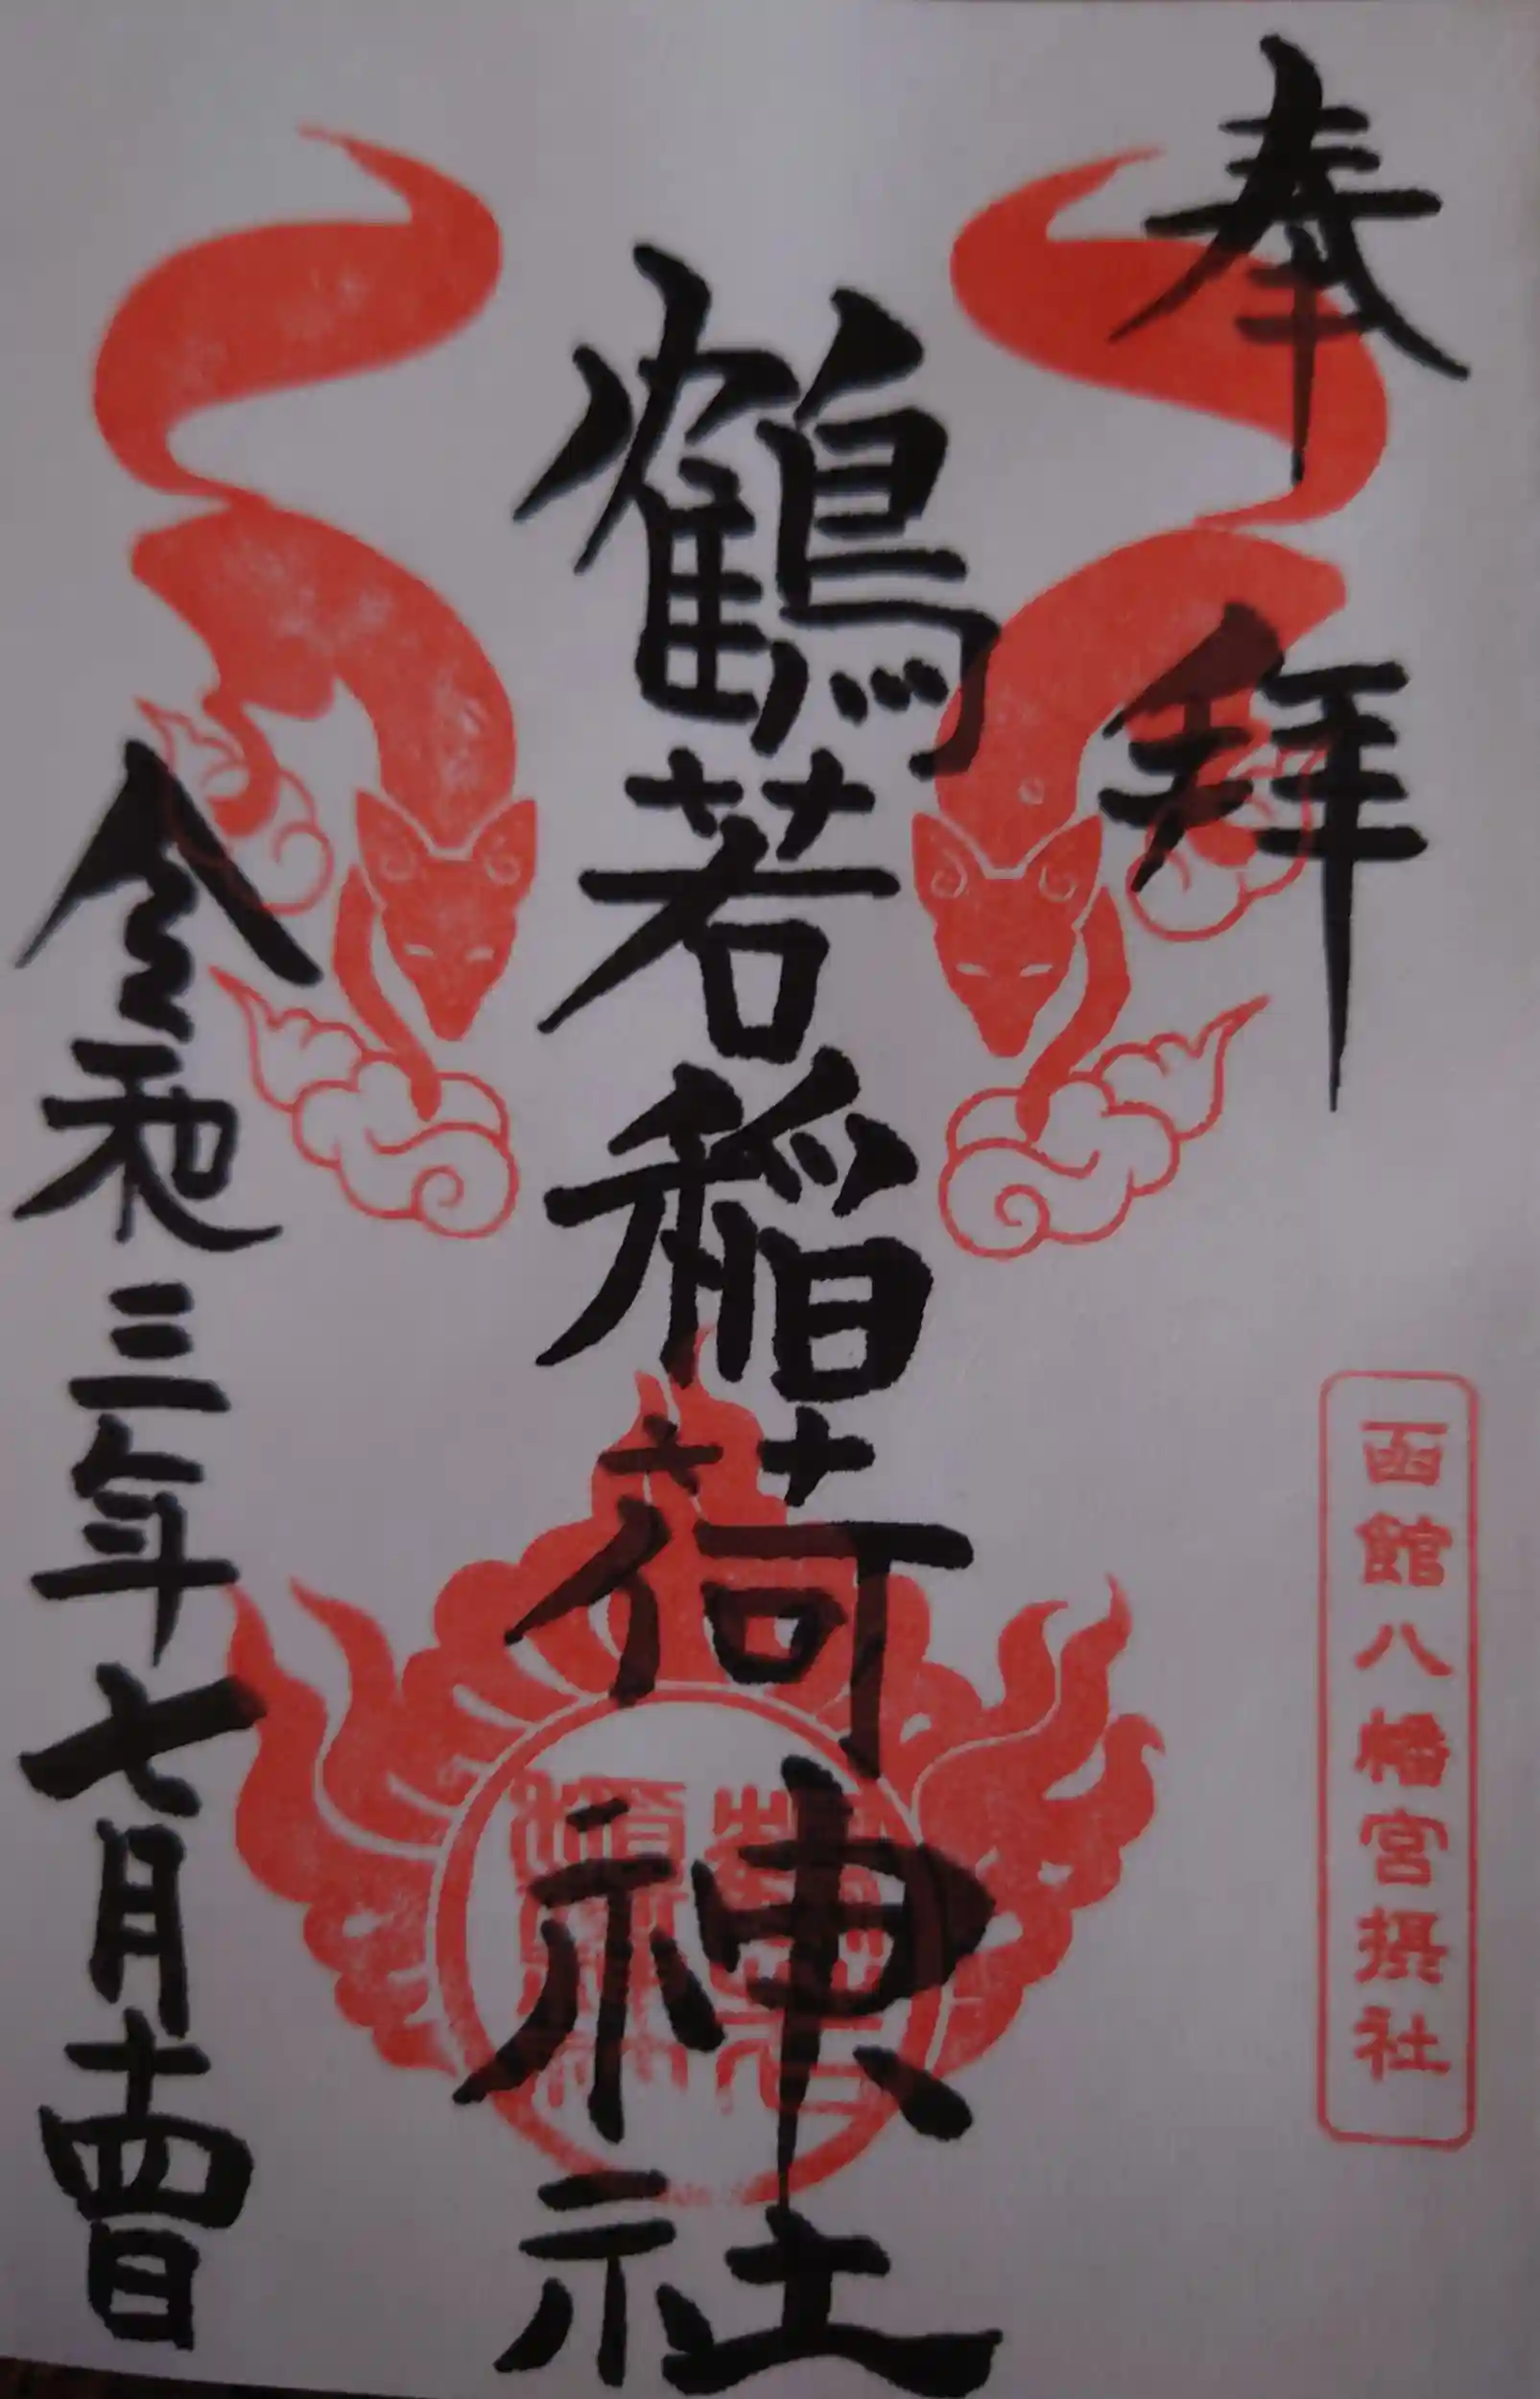 奉拝
函館八幡宮摂社
鶴若稲荷神社
令和三年七月十四日